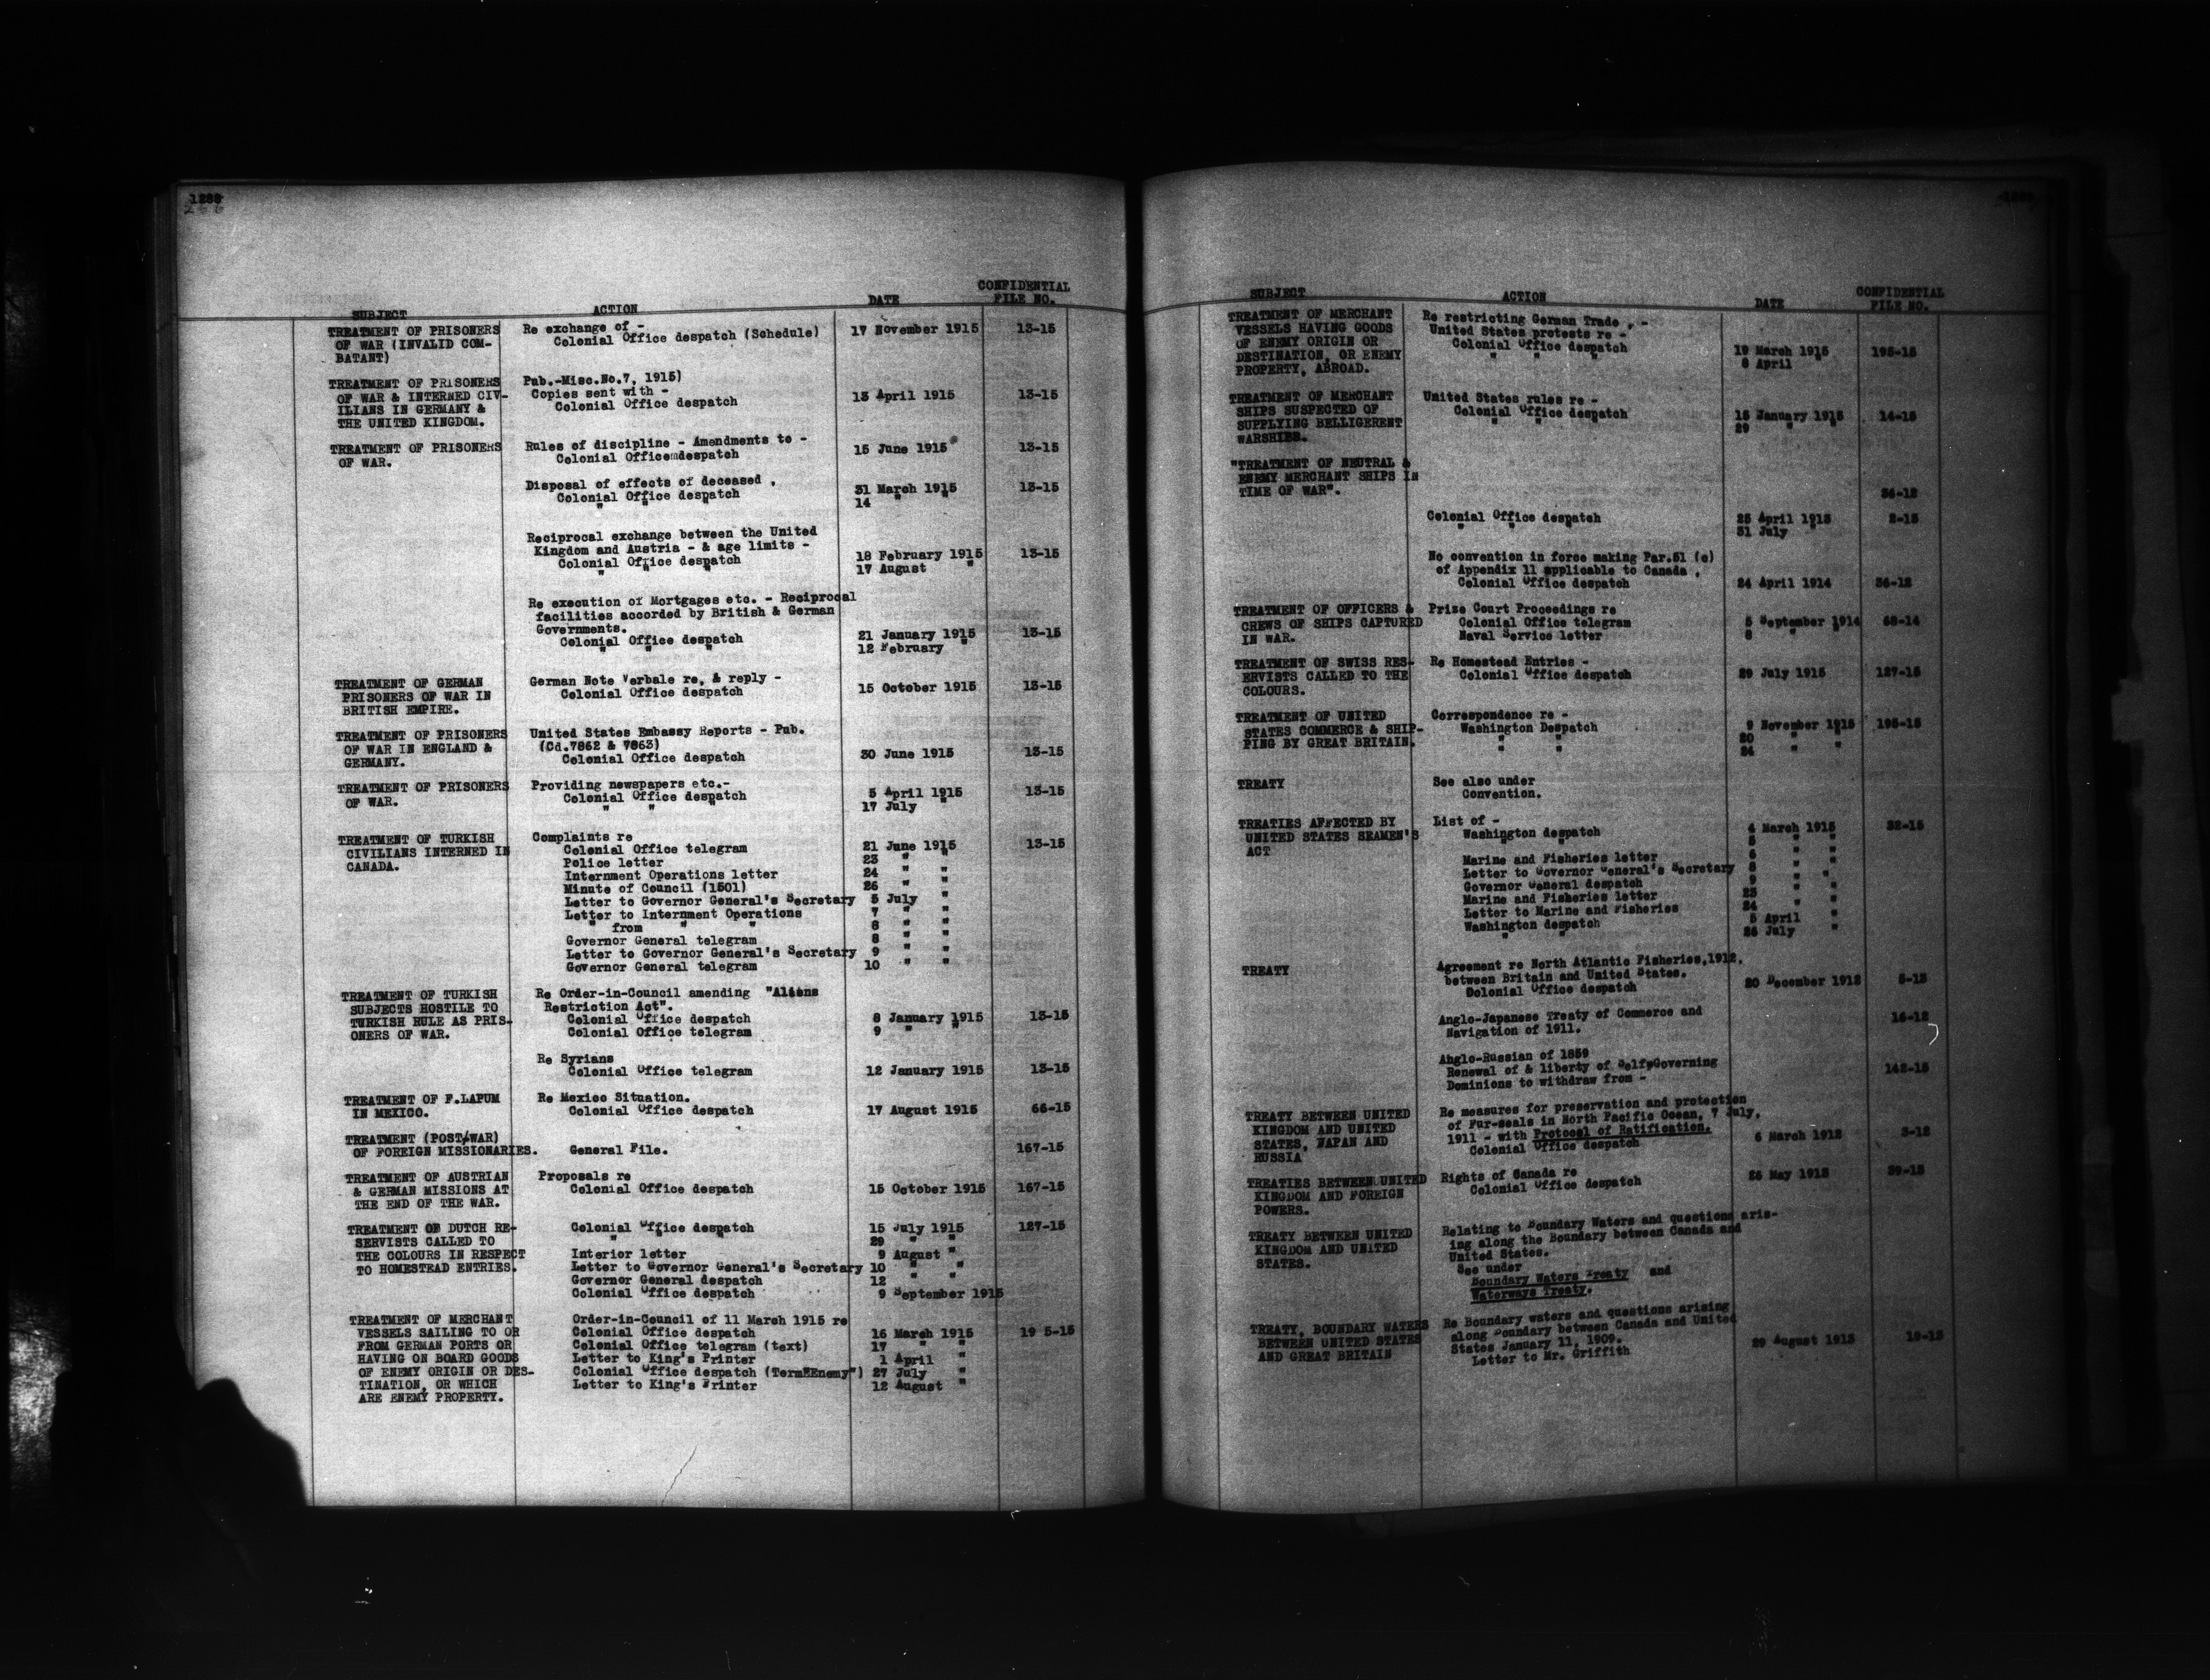 1288
SUBJECT ACTION DATE CONFIDENTIAL FILE NO.
TREATMENT OF PRISONERS Re exchange of -
OF WAR (INVALID COM- Colonial Office despatch (Schedule) 17 November 1915 13-15
BATANT)
TREATMENT OF PRISONERS Pub.-Misc.No.7, 1915)
OF WAR & INTERNED CIV- Copies sent with -
ILIANS IN GERMANY & Colonial Office despatch 13 April 1915 13-15
THE UNITED KINGDOM.
TREATMENT OF PRISONERS Rules of discipline - Amendments to -
OF WAR. Colonial Office despatch 15 June 1915 13-15
Disposal of effects of deceased .
Colonial Office despatch 31 March 1915 13-15
" " " 14 " "
Reciprocal exchange between the United
Kingdom and Austria - & age limits -
Colonial Office despatch 18 February 1915 13-15
" " " 17 August "
Re execution of Mortgages etc. - Reciprocal
facilities accorded by British & German
Governments.
Colonial Office despatch 21 January 1915 13-15
" " " 12 February "
TREATMENT OF GERMAN German Note Verbale re, & reply -
PRISONERS OF WAR IN Colonial Office despatch 15 October 1915 13-15
BRITISH EMPIRE.
TREATMENT OF PRISONERS United States Embassy Reports - Pub.
OF WAR IN ENGLAND & (Cd.7862 & 7863)
GERMANY. Colonial Office despatch 30 June 1915 13-15
TREATMENT OF PRISONERS Providing newspapers etc.-
OF WAR. Colonial Office despatch 5 April 1915 13-15
" " " 17 July "
TREATMENT OF TURKISH Complaints re
CIVILIANS INTERNED IN Colonial Office telegram 21 June 1915 13-15
CANADA. Police letter 23 " "
Internment Operations letter 24 " "
Minute of Council (1501) 26 " "
Letter to Governor General's Secretary 5 July "
Letter to Internment Operations 7 " "
" from " " 8 " "
Governor General telegram 8 " "
Letter to Governor General's Secretary 9 " "
Governor General telegram 10 " "
TREATMENT OF TURKISH Re Order-in-Council amending "Aliens
SUBJECTS HOSTILE TO Restriction Act".
TURKISH RULE AS PRIS- Colonial Office despatch 8 January 1915 13-15
ONERS OF WAR. Colonial Office telegram 9 " "
Re Syrians
Colonial Office telegram 12 January 1915 13-15
TREATMENT OF F.LAPUM Re Mexico Situation.
IN MEXICO. Colonial Office despatch 17 August 1915 66-15
TREATMENT (POST/WAR)
OF FOREIGN MISSIONARIES. General File. 167-15
TREATMENT OF AUSTRIAN Proposals re
& GERMAN MISSIONS AT Colonial Office despatch 15 October 1915 167-15
THE END OF THE WAR.
TREATMENT OF DUTCH RE- Colonial Office despatch 15 July 1915 127-15
SERVISTS CALLED TO " " " 29 " "
THE COLOURS IN RESPECT Interior letter 9 August "
TO HOMESTEAD ENTRIES. Letter to Governor General's Secretary 10 " "
Governor General despatch 12 " "
Colonial Office despatch 9 September 1915
TREATMENT OF MERCHANT Order-in-Council of 11 March 1915 re
VESSELS SAILING TO OR Colonial Office despatch 16 March 1915 19 5-15
FROM GERMAN PORTS OR Colonial Office telegram (text) 17 " "
HAVING ON BOARD GOODS Letter to King's Printer 1 April "
OF ENEMY ORIGIN OR DES- Colonial Office despatch (Term"Enemy") 27 July "
TINATION, OR WHICH Letter to King's Printer 12 August "
ARE ENEMY PROPERTY.
SUBJECT ACTION DATE CONFIDENTIAL FILE NO.
TREATMENT OF MERCHANT Re restricting German Trade . -
VESSELS HAVING GOODS United States protests re -
OF ENEMY ORIGIN OR Colonial Office despatch 19 March 1915 195-15
DESTINATION, OR ENEMY " " " 8 April "
PROPERTY, ABROAD.
TREATMENT OF MERCHANT United States rules re -
SHIPS SUSPECTED OF Colonial Office despatch 15 January 1915 14-15
SUPPLYING BELLIGERENT " " " 29 " "
WARSHIPS.
"TREATMENT OF NEUTRAL &
ENEMY MERCHANT SHIPS IN
TIME OF WAR". 36-12
Colonial Office despatch 25 April 1913 2-13
" " " 31 July "
No convention in force making Par.51 (e)
of Appendix 11 applicable to Canada .
Colonial Office despatch 24 April 1914 36-12
TREATMENT OF OFFICERS & Prize Court Proceedings re
CREWS OF SHIPS CAPTURED Colonial Office telegram 5 September 1914 68-14
IN WAR. Naval Service letter 8 " "
TREATMENT OF SWISS RES- Re Homestead Entries -
ERVISTS CALLED TO THE Colonial Office despatch 29 July 1915 127-15
COLOURS.
TREATMENT OF UNITED Correspondence re -
STATES COMMERCE & SHIP- Washington Despatch 9 November 1915 195-15
PING BY GREAT BRITAIN. " " 20 " "
" " 24 " "
TREATY See also under
Convention.
TREATIES AFFECTED BY List of -
UNITED STATES SEAMEN'S Washington despatch 4 March 1915 32-15
ACT " " 5 " "
Marine and Fisheries letter 6 " "
Letter to Governor General's Secretary 8 " "
Governor General despatch 9 " "
Marine and Fisheries letter 23 "
Letter to Marine and Fisheries 24 " "
Washington despatch 5 April "
" " 26 July "
TREATY Agreement re North Atlantic Fisheries,1912.
between Britain and United States.
Colonial Office despatch 20 December 1912 5-13
Anglo-Japanese Treaty of Commerce and 16-12
Navigation of 1911.
Anglo-Russian of 1859
Renewal of & liberty of Self-Governing 142-15
Dominions to withdraw from -
TREATY BETWEEN UNITED Re measures for preservation and protection
KINGDOM AND UNITED of Fur-seals in North Pacific Ocean, 7 July,
STATES, JAPAN AND 1911 - with Protocol of Ratification.
RUSSIA Colonial Office despatch 6 March 1912 3-12
TREATIES BETWEEN UNITED Rights of Canada re
KINGDOM AND FOREIGN Colonial Office despatch 26 May 1913 39-13
POWERS.
TREATY BETWEEN UNITED Relating to Boundary Waters and questions aris-
KINGDOM AND UNITED ing along the Boundary between Canada and
STATES. United States.
See under
Boundary Waters Treaty and
Waterways Treaty.
TREATY, BOUNDARY WATERS Re Boundary waters and questions arising
BETWEEN UNITED STATES along Boundary between Canada and United
AND GREAT BRITAIN States January 11, 1909.
Letter to Mr. Griffith 29 August 1913 19-13